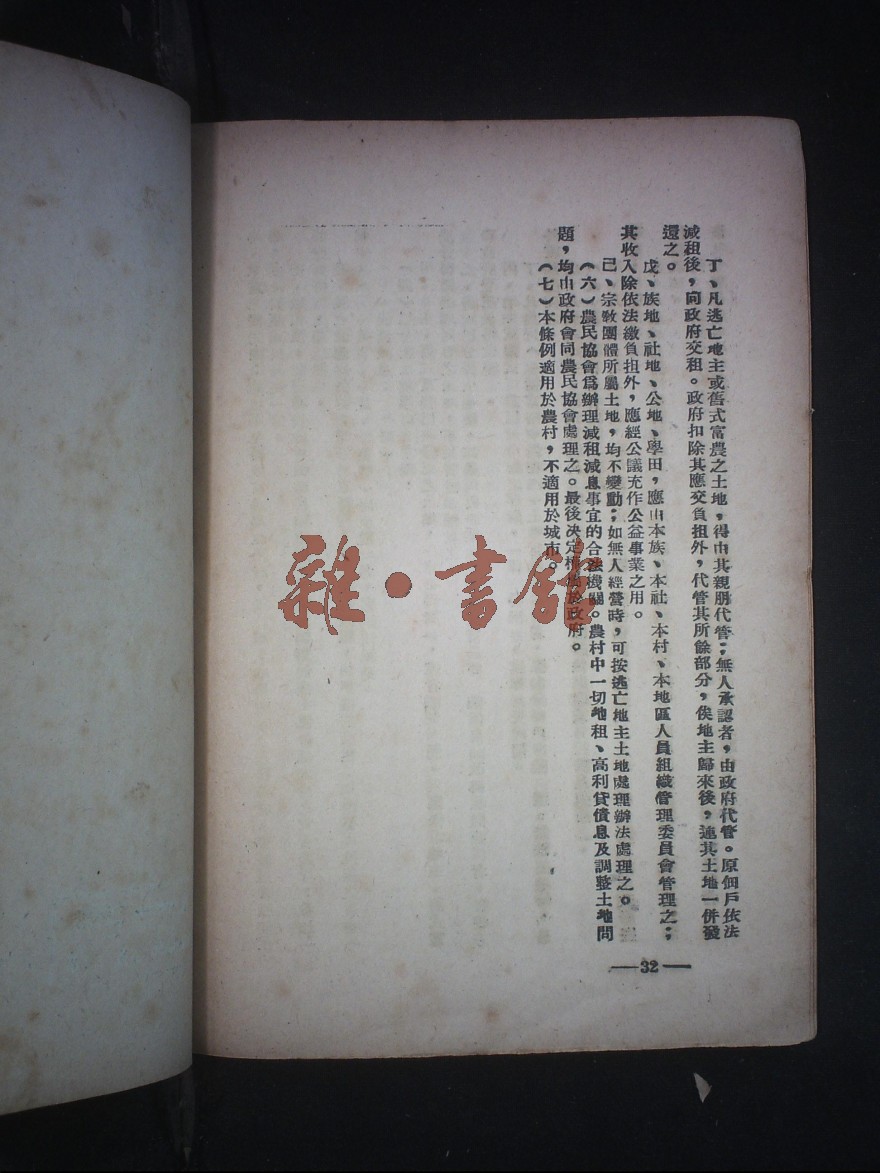 丁、凡逃亡地主或舊式富農之土地，得由其親朋代管；無人承認者，由政府代管。原佃戶依法
減租後，向政府交租。政府扣除其應交負担外，代管其所餘部分，俟地主歸來後，連其土地一併發
還之。
戊、族地、社地、公地、學田，應由本族、本社、本村、本地區人員組織管理委員會管理之；
其收入除依法繳負担外，應經公議充作公益事業之用。
己、宗敎團體所屬土地，均不變動；如無人經營時，可按逃亡地主土地處理辦法處理之。
（六）農民協會爲辦理減租減息事宜的合法機關。農村中一切地租、高利貸債息及調整土地問
題，均由政府會同農民協會處理之。最後决定權屬於政府。
（七）本條例適用於農村，不適用於城市。
—32—
雜·書館